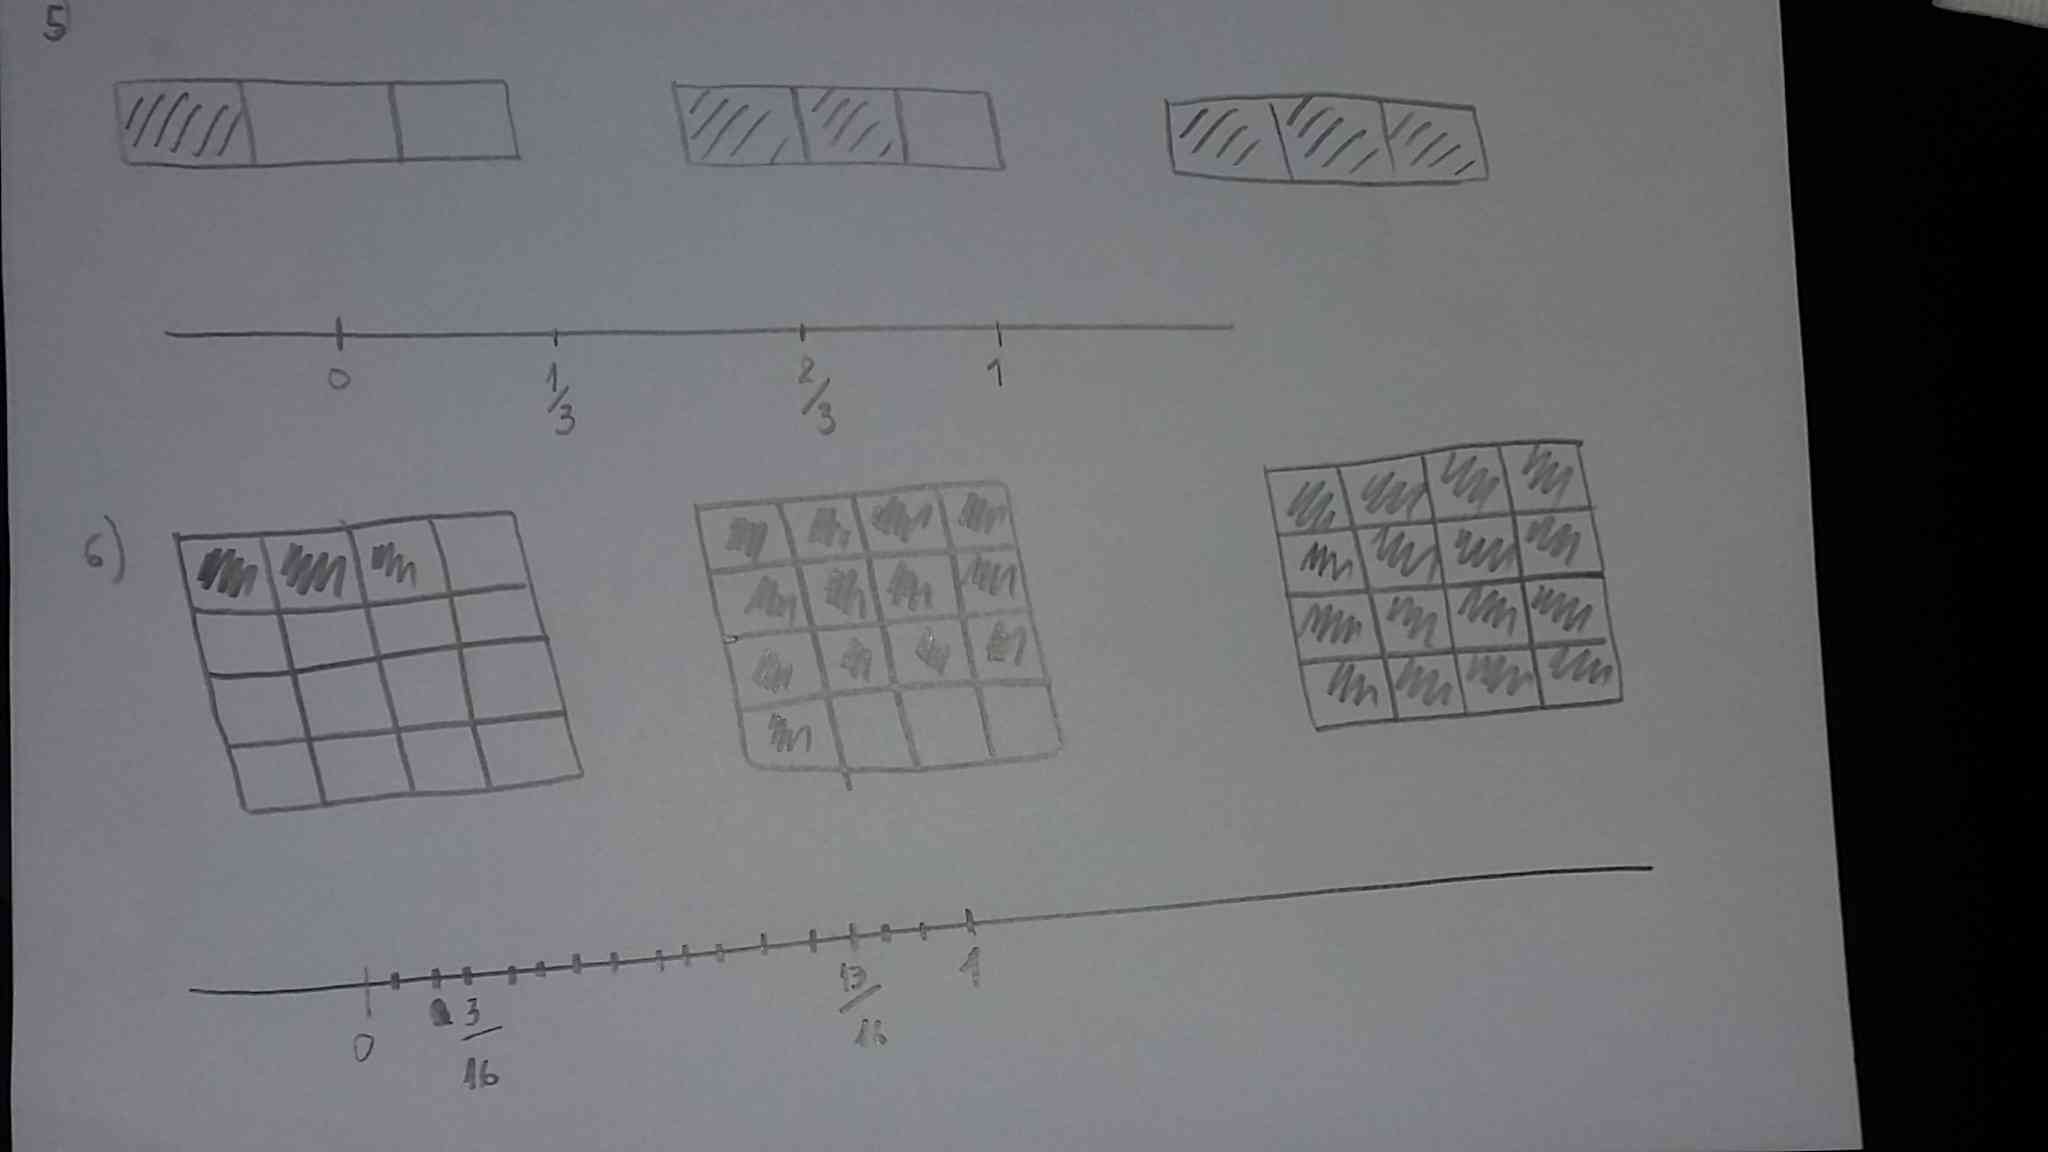 5
0 1/3 2/3 1
6)
0 3/16 13/16 1